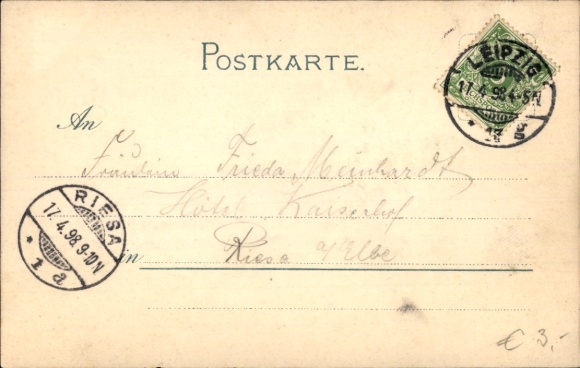 POSTKARTE.
LEIPZIG
17.4.98.4-5N
* 13 g
An
Fräulein Frieda Meinhardt
Hôtel Kaiserhof
in Riesa a/Elbe
RIESA
17.4.98.9-10N
* 1 a
€ 3,-